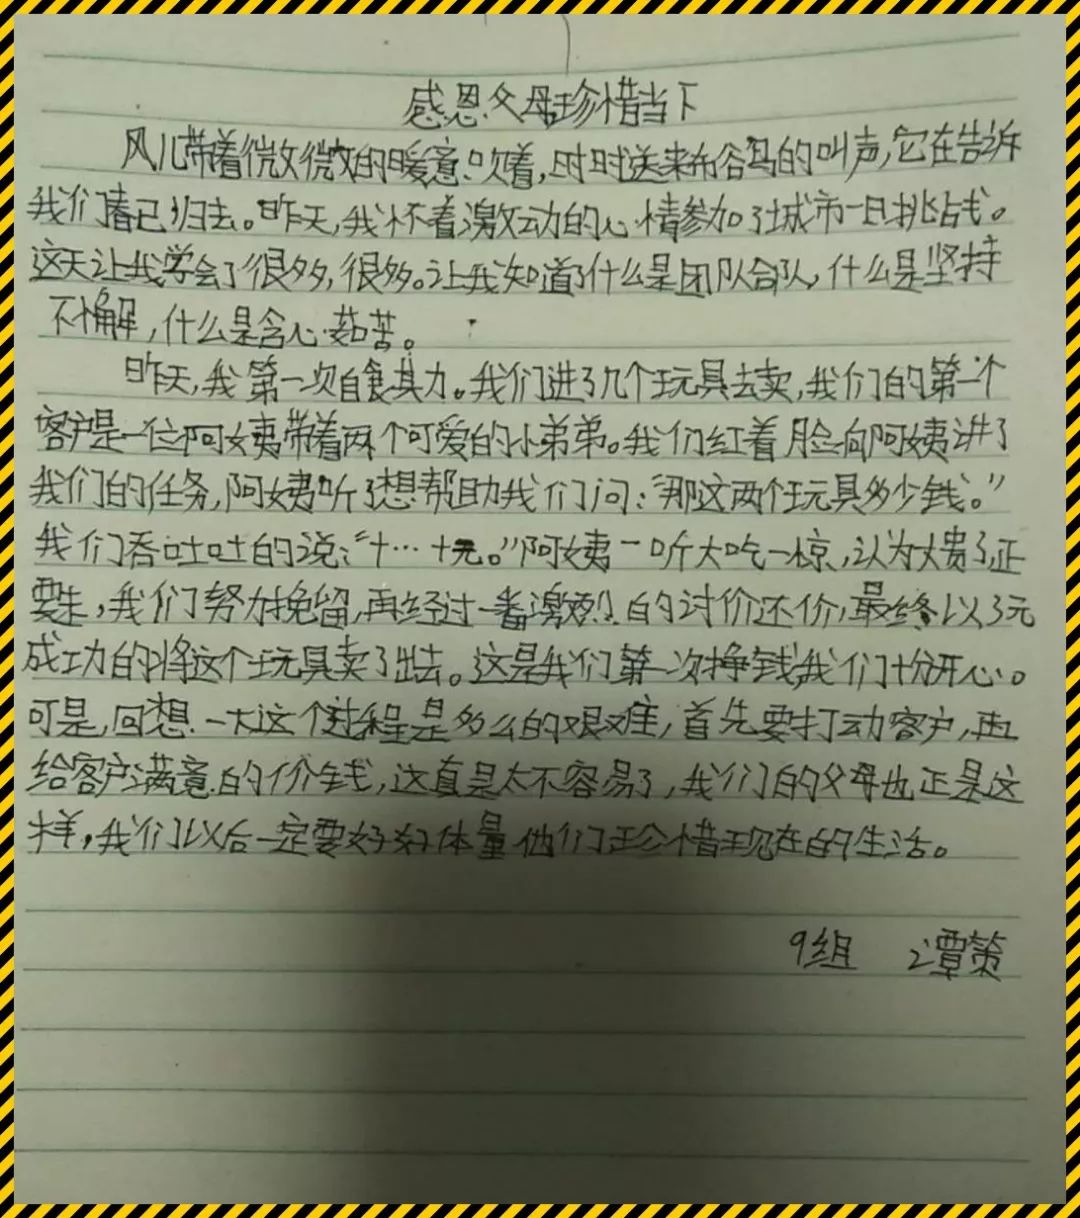 感恩父母珍惜当下
风儿带着微微的暖意吹着,时时送来布谷鸟的叫声,它在告诉
我们春已归去。昨天,我怀着激动的心情参加了城市一日挑战。
这天让我学会了很多,很多。让我知道了什么是团队合队,什么是坚持
不懈,什么是含心茹苦。
昨天,我第一次自食其力。我们进了几个玩具去卖,我们的第一个
客户是一位阿姨带着两个可爱的小弟弟。我们红着脸向阿姨讲了
我们的任务,阿姨听了想帮助我们问:“那这两个玩具多少钱。”
我们吞吐吐的说:“十…十元。”阿姨一听大吃一惊,认为太贵了正
要走,我们努力挽留,再经过一番激烈的讨价还价,最终以3元
成功的将这个玩具卖了出去。这是我们第一次挣钱,我们十份开心。
可是,回想一大这个过程是多么的艰难,首先要打动客户,再
给客户满意的价钱,这真是太不容易了,我们的父母也正是这
样,我们以后一定要好好体量他们珍惜现在的生活。
9组 谭策